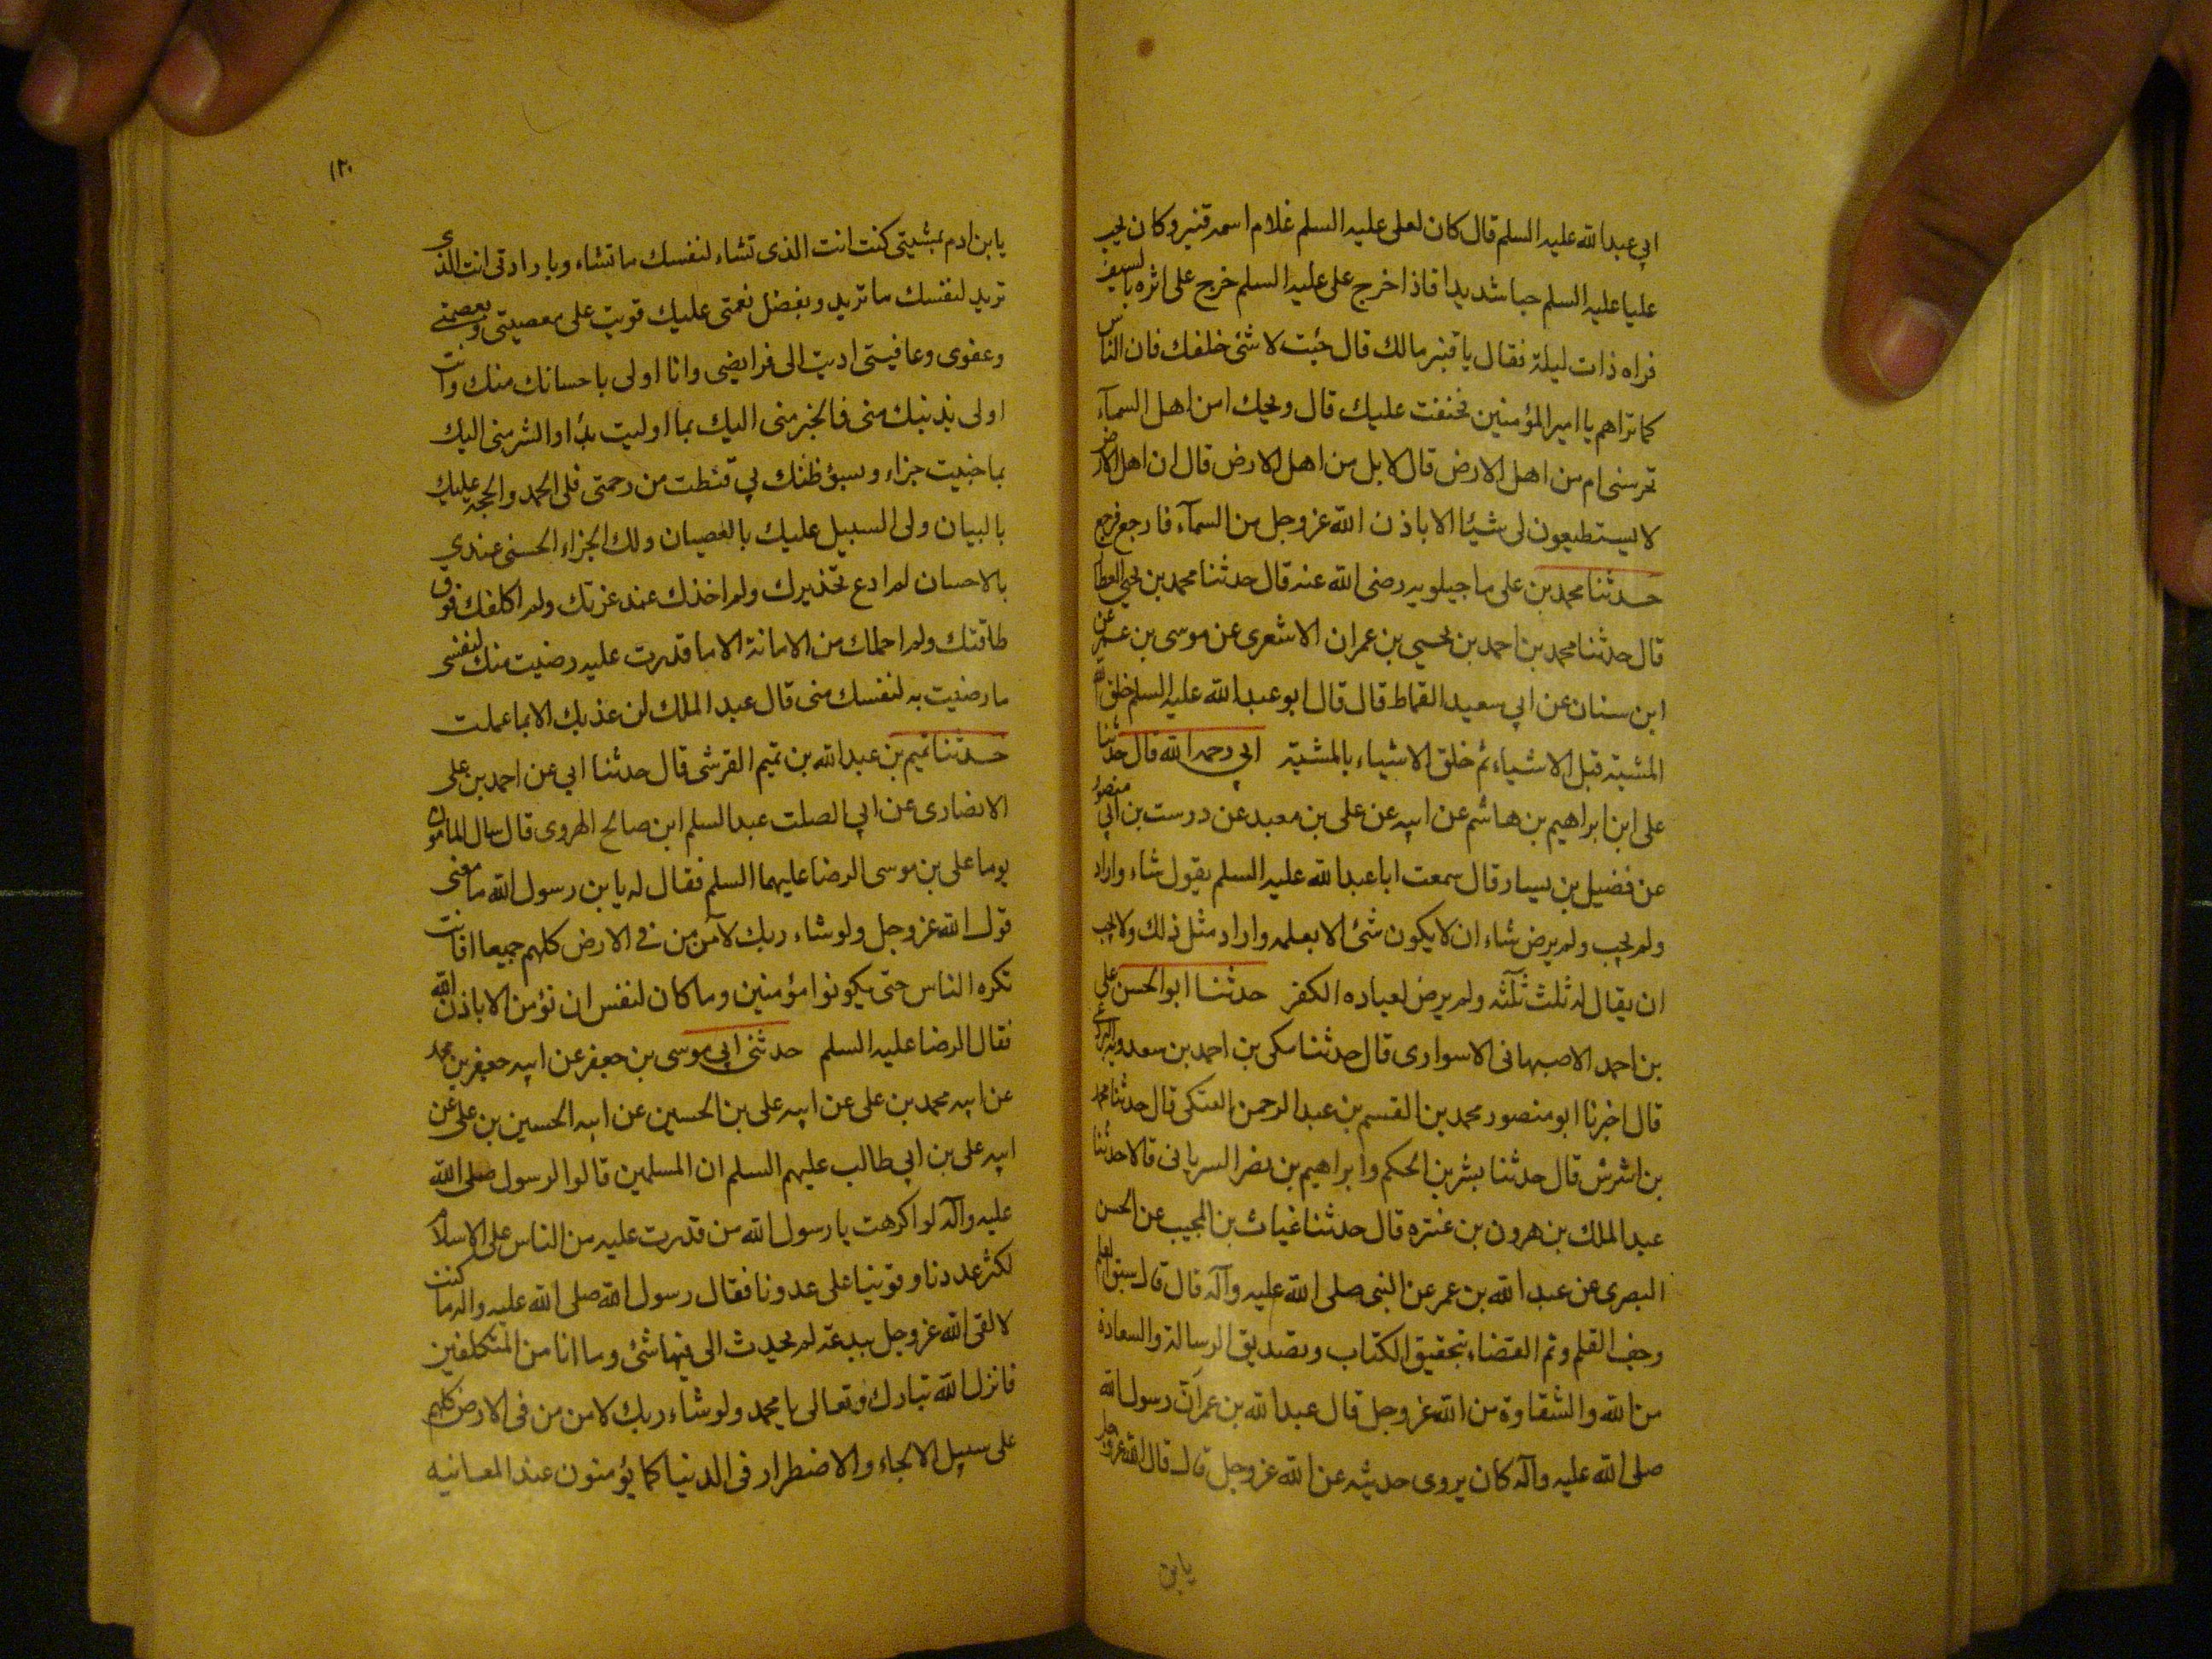 ابي عبد الله عليه السلم قال كان لعلى عليه السلم غلام اسمه قنبر وكان يحب
عليا عليه السلم حبا شديدا فاذا خرج على عليه السلم خرج على اثره بالسيف
فراه ذات ليلة فقال يا قنبر مالك قال جئت لاشئ خلفك فان الناس
كما تراهم يا امير المؤمنين فخفت عليك قال ويحك امن اهل السمآء
تحرسنى ام من اهل الارض قال لا بل من اهل الارض قال ان اهل الارض
لا يستطيعون لى شيئا الا باذن الله عز وجل من السمآء فارجع فرجع
حدثنا محمد بن على ماجيلويه رضى الله عنه قال حدثنا محمد بن يحيى العطار
قال حدثنا محمد بن احمد بن يحيى بن عمران الاشعرى عن موسى بن عمر عن
ابن سنان عن ابي سعيد القماط قال قال ابو عبد الله عليه السلم خلق الله
المشية قبل الاشياء ثم خلق الاشياء بالمشية ابي رحمه الله قال حدثنا
على ابن ابراهيم بن هاشم عن ابيه عن على بن معبد عن درست بن ابي منصور
عن فضيل بن يسار قال سمعت ابا عبد الله عليه السلم يقول شاء واراد
ولم يحب ولم يرض شاء ان لا يكون شئ الا بعلمه واراد مثل ذلك ولم يحب
ان يقال له ثلث ثلثه ولم يرض لعباده الكفر حدثنا ابو الحسن على
بن احمد الاصبهانى الاسوارى قال حدثنا مكى بن احمد بن سعدويه البرذعى
قال اخبرنا ابو منصور محمد بن القسم بن عبد الرحمن العتكى قال حدثنا محمد
بن اشرش قال حدثنا بشر بن الحكم وابراهيم بن نصر السريانى قالا حدثنا
عبد الملك بن هرون بن عنتره قال حدثنا غياث بن المجيب عن الحسن
البصرى عن عبد الله بن عمر عن النبى صلى الله عليه وآله قال قال سبق العلم
وجف القلم وتم القضاء بتحقيق الكتاب وتصديق الرسالة والسعادة
من الله والشقاوة من الله عز وجل قال عبد الله بن عمر ان رسول الله
صلى الله عليه وآله كان يروى حديثه عن الله عز وجل قال قال الله عز وجل
يا بن
١٢٠
يا بن ادم بمشيتى كنت انت الذى تشاء لنفسك ما تشاء وبارادتى انت الذى
تريد لنفسك ما تريد وبفضل نعمتى عليك قويت على معصيتى وبعصمتى
وعفوى وعافيتى اديت الى فرايضى وانا اولى باحسانك منك وانت
اولى بذنبك منى فالخير منى اليك بما اوليت بدا والشر منى اليك
بما جنيت جزاء وبسوء ظنك بي قنطت من رحمتى فلى الحمد والحجة عليك
بالبيان ولى السبيل عليك بالعصيان ولك الجزاء الحسنى عندي
بالاحسان لم ادع تحذيرك ولم اخذك عند غرتك ولم اكلفك فوق
طاقتك ولم احملك من الامانة الا ما قدرت عليه رضيت منك لنفسى
ما رضيت به لنفسك منى قال عبد الملك لن عذبك الا بما عملت
حدثنا تميم بن عبد الله بن تميم القرشى قال حدثنا ابي عن احمد بن على
الانصارى عن ابي الصلت عبد السلم ابن صالح الهروى قال سال المامون
يوما على بن موسى الرضا عليهما السلم فقال له يا بن رسول الله ما معنى
قول الله عز وجل ولو شاء ربك لآمن من فى الارض كلهم جميعا افانت
تكره الناس حتى يكونوا مؤمنين وما كان لنفس ان تؤمن الا باذن الله
فقال الرضا عليه السلم حدثنى ابي موسى بن جعفر عن ابيه جعفر بن محمد
عن ابيه محمد بن على عن ابيه على بن الحسين عن ابيه الحسين بن على عن
ابيه على بن ابي طالب عليهم السلم ان المسلمين قالوا لرسول صلى الله
عليه وآله لو اكرهت يا رسول الله من قدرت عليه من الناس على الاسلام
لكثر عددنا وقوينا على عدونا فقال رسول الله صلى الله عليه واله ما كنت
لالقى الله عز وجل ببدعة لم يحدث الى فيها شئ وما انا من المتكلفين
فانزل الله تبارك وتعالى يا محمد ولو شاء ربك لامن من فى الارض كلهم
على سبيل الالجاء والاضطرار فى الدنيا كما يؤمنون عند المعاينه